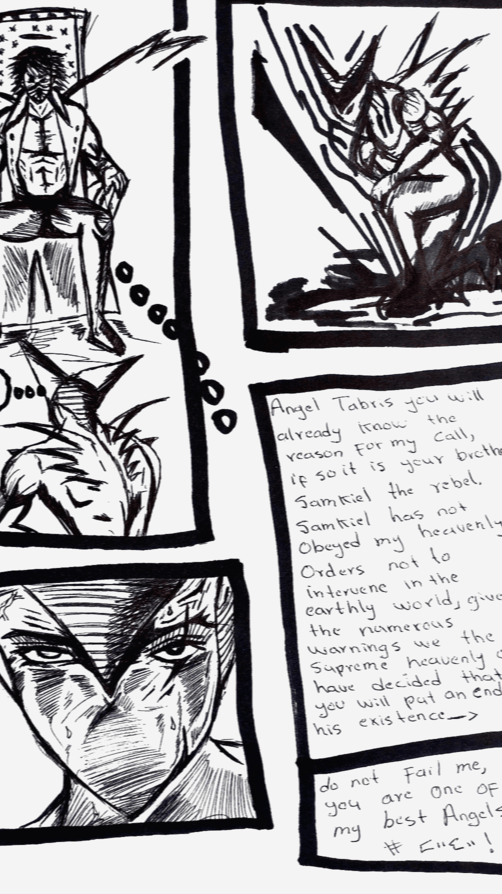 Angel Tabris you will
already know the
reason For my call,
if so it is your brothe
Samkiel the rebel.
Samkiel has not
Obeyed my heavenly
Orders not to
intervene in the
earthly world, give
the numerous
warnings we the
Supreme heavenly
have decided that
you will put an end
his existence →
do not Fail me,
you are one OF
my best Angels
!